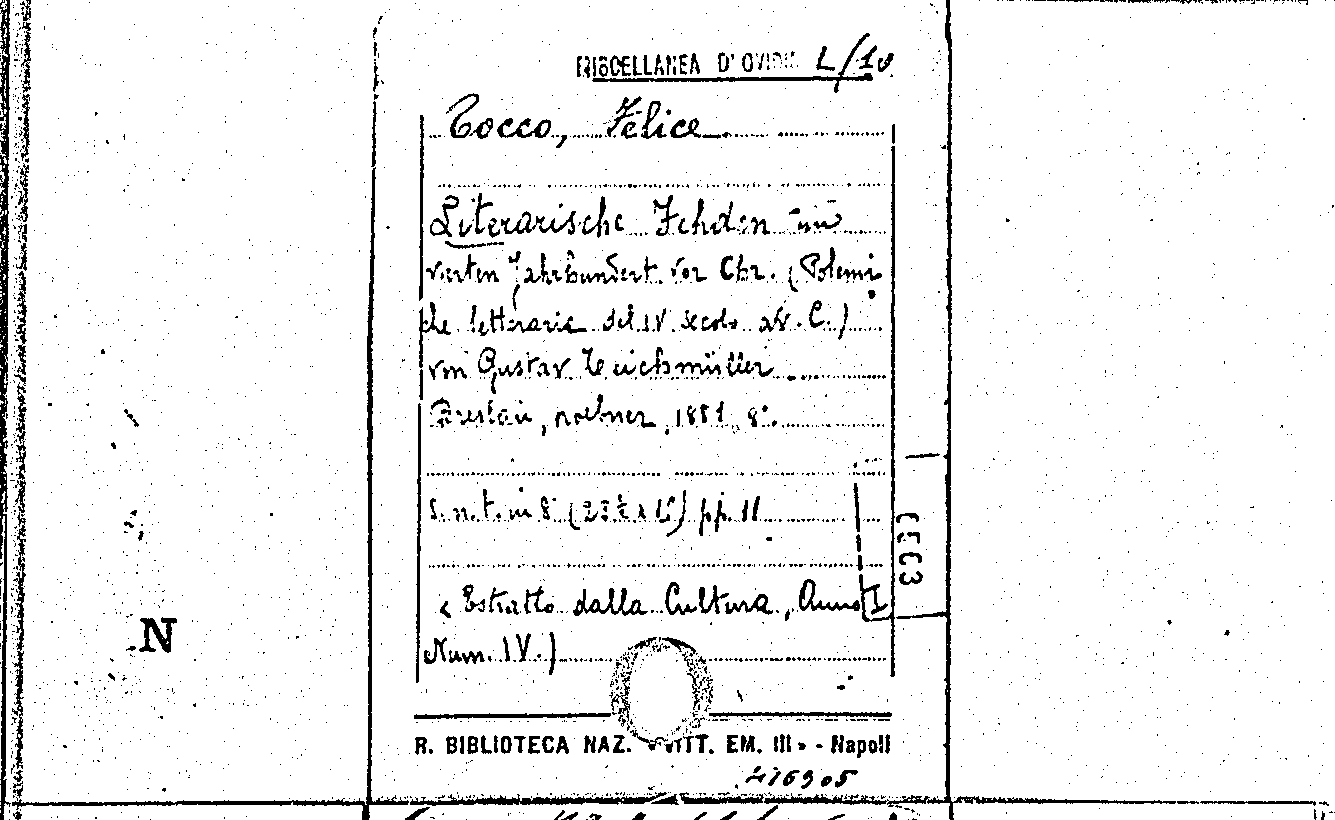 MISCELLANEA D'OVIDIO L/10
Tocco, Felice
Literarische Fehden im
vierten Jahrhundert vor Chr. (Polemi
che letterarie del IV secolo av. C.)
von Gustav Teichmüller
Breslau, Koebner, 1881, 8°.
s. n. t. in 8° pp. 11
(Estratto dalla Cultura, Anno I
Num. IV.)
N
R. BIBLIOTECA NAZ. «VITT. EM. III» - Napoli